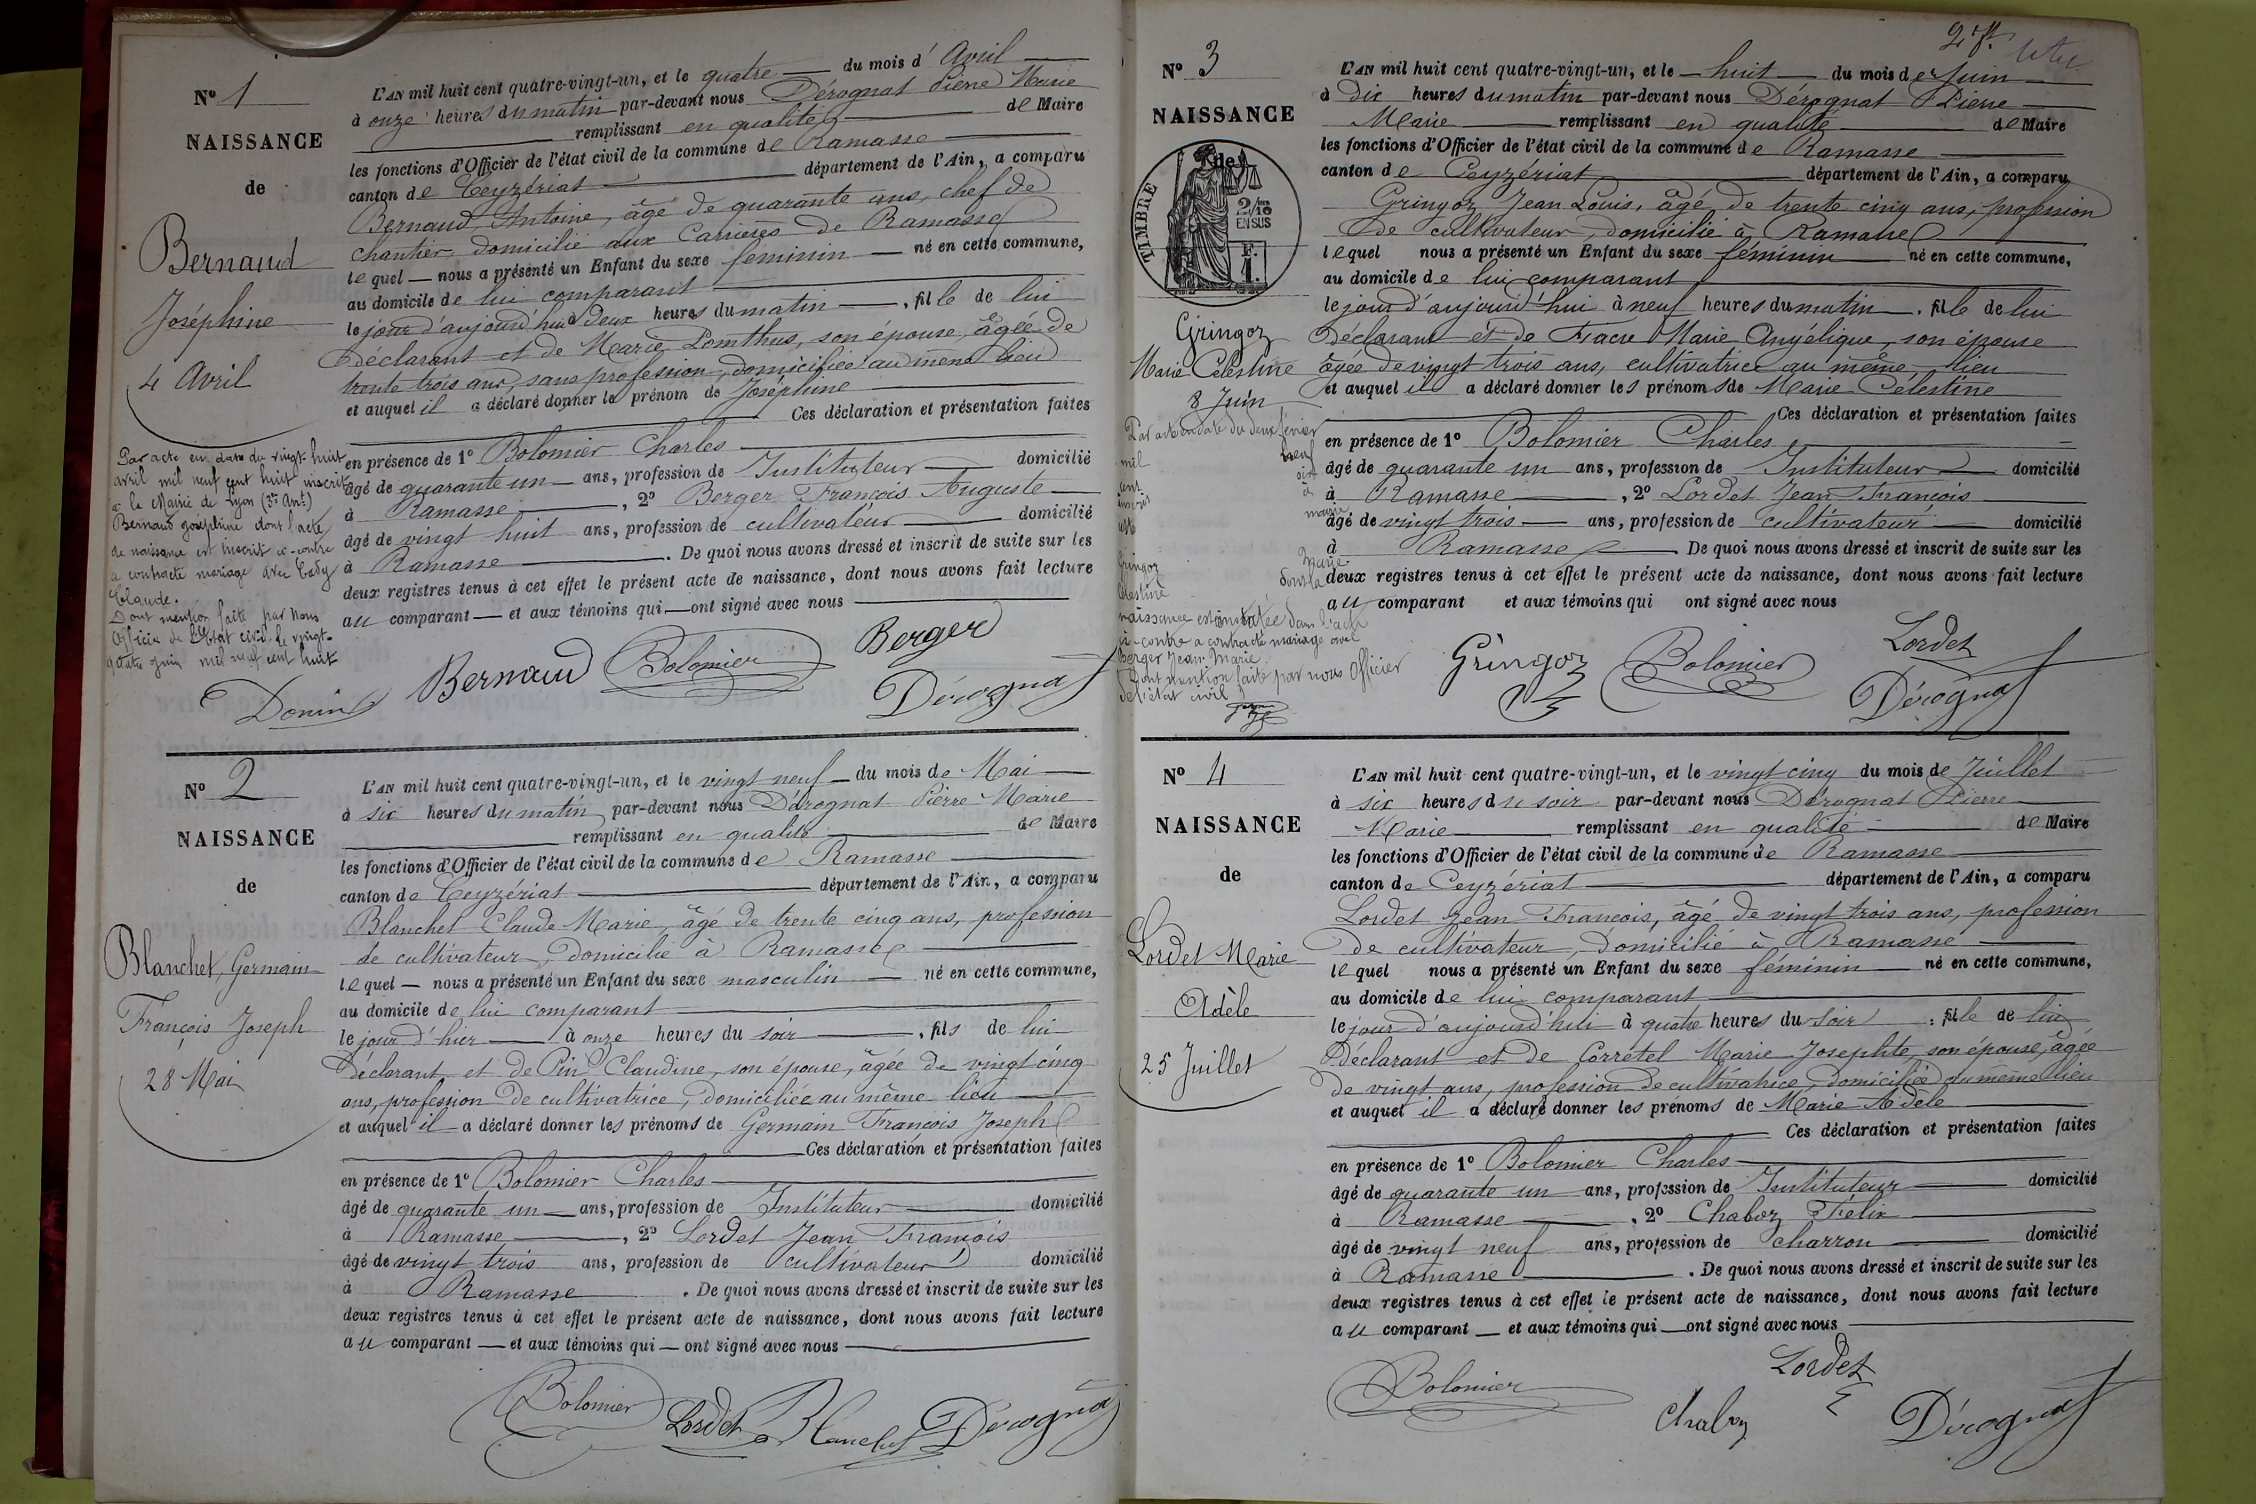 N° 1
NAISSANCE
de
Bernaud
Joséphine
4 Avril
Par acte en date du vingt-huit
avril mil neuf cent huit inscrit
à la Mairie de Lyon (3me Arrt)
Bernaud Joséphine dont l'acte
de naissance est inscrit ci-contre
a contracté mariage avec Cady
Claude.
Dont mention faite par nous
Officier de l'Etat civil, le vingt-
quatre juin mil neuf cent huit
Donin
L'AN mil huit cent quatre-vingt-un, et le quatre du mois d'Avril
à onze heures du matin par-devant nous Dérognat Pierre Marie
remplissant en qualité de Maire
les fonctions d'Officier de l'état civil de la commune de Ramasse
canton de Ceyzériat département de l'Ain, a comparu
Bernaud Antoine, âgé de quarante ans, chef de
chantier, domicilié aux Carrières de Ramasse
lequel nous a présenté un Enfant du sexe féminin né en cette commune,
au domicile de lui comparant
le jour d'aujourd'hui à deux heures du matin, fille de lui
déclarant et de Marie Pomthus, son épouse, âgée de
trente trois ans, sans profession, domiciliée au même lieu
et auquel il a déclaré donner le prénom de Joséphine
Ces déclaration et présentation faites
en présence de 1° Bolomier Charles
âgé de quarante un ans, profession de Instituteur domicilié
à Ramasse, 2° Berger François Auguste
âgé de vingt huit ans, profession de cultivateur domicilié
à Ramasse. De quoi nous avons dressé et inscrit de suite sur les
deux registres tenus à cet effet le présent acte de naissance, dont nous avons fait lecture
au comparant et aux témoins qui ont signé avec nous
Bernaud Bolomier Berger
Dérognat
N° 2
NAISSANCE
de
Blanchet, Germain
François Joseph
28 Mai
L'AN mil huit cent quatre-vingt-un, et le vingt neuf du mois de Mai
à six heures du matin par-devant nous Dérognat Pierre Marie
remplissant en qualité de Maire
les fonctions d'Officier de l'état civil de la commune de Ramasse
canton de Ceyzériat département de l'Ain, a comparu
Blanchet Claude Marie, âgé de trente cinq ans, profession
de cultivateur, domicilié à Ramasse
lequel nous a présenté un Enfant du sexe masculin né en cette commune,
au domicile de lui comparant
le jour d'hier à onze heures du soir, fils de lui
déclarant et de Pin Claudine, son épouse, âgée de vingt cinq
ans, profession de cultivatrice, domiciliée au même lieu
et auquel il a déclaré donner les prénoms de Germain François Joseph
Ces déclaration et présentation faites
en présence de 1° Bolomier Charles
âgé de quarante un ans, profession de Instituteur domicilié
à Ramasse, 2° Lordet Jean François
âgé de vingt trois ans, profession de cultivateur domicilié
à Ramasse. De quoi nous avons dressé et inscrit de suite sur les
deux registres tenus à cet effet le présent acte de naissance, dont nous avons fait lecture
au comparant et aux témoins qui ont signé avec nous
Bolomier Lordet Blanchet Dérognat
N° 3
NAISSANCE
de
TIMBRE
2/10
EN SUS
F.
1.
Gringoz
Marie Célestine
8 Juin
Par acte en date du deux février
mil neuf
cent
inscrit à
mairie
Gringoz Marie
Célestine dont la
naissance est constatée dans l'acte
ci-contre a contracté mariage avec
Berger Jean Marie
Dont mention faite par nous Officier
de l'état civil
L'AN mil huit cent quatre-vingt-un, et le huit du mois de Juin
à dix heures du matin par-devant nous Dérognat Pierre
Marie remplissant en qualité de Maire
les fonctions d'Officier de l'état civil de la commune de Ramasse
canton de Ceyzériat département de l'Ain, a comparu
Gringoz Jean Louis, âgé de trente cinq ans, profession
de cultivateur, domicilié à Ramasse
lequel nous a présenté un Enfant du sexe féminin né en cette commune,
au domicile de lui comparant
le jour d'aujourd'hui à neuf heures du matin, fille de lui
déclarant et de Fiacre Marie Angélique, son épouse
âgée de vingt trois ans, cultivatrice au même lieu
et auquel il a déclaré donner les prénoms de Marie Célestine
Ces déclaration et présentation faites
en présence de 1° Bolomier Charles
âgé de quarante un ans, profession de Instituteur domicilié
à Ramasse, 2° Lordet Jean François
âgé de vingt trois ans, profession de cultivateur domicilié
à Ramasse. De quoi nous avons dressé et inscrit de suite sur les
deux registres tenus à cet effet le présent acte de naissance, dont nous avons fait lecture
au comparant et aux témoins qui ont signé avec nous
Gringoz Bolomier Lordet
Dérognat
N° 4
NAISSANCE
de
Lordet Marie
Adèle
25 Juillet
L'AN mil huit cent quatre-vingt-un, et le vingt cinq du mois de Juillet
à six heures du soir par-devant nous Dérognat Pierre
Marie remplissant en qualité de Maire
les fonctions d'Officier de l'état civil de la commune de Ramasse
canton de Ceyzériat département de l'Ain, a comparu
Lordet Jean François, âgé de vingt trois ans, profession
de cultivateur, domicilié à Ramasse
lequel nous a présenté un Enfant du sexe féminin né en cette commune,
au domicile de lui comparant
le jour d'aujourd'hui à quatre heures du soir, fille de lui
déclarant et de Corretel Marie Josephte, son épouse, âgée
de vingt ans, profession de cultivatrice, domiciliée au même lieu
et auquel il a déclaré donner les prénoms de Marie Adèle
Ces déclaration et présentation faites
en présence de 1° Bolomier Charles
âgé de quarante un ans, profession de Instituteur domicilié
à Ramasse, 2° Chaboz Félix
âgé de vingt neuf ans, profession de charron domicilié
à Ramasse. De quoi nous avons dressé et inscrit de suite sur les
deux registres tenus à cet effet le présent acte de naissance, dont nous avons fait lecture
au comparant et aux témoins qui ont signé avec nous
Bolomier Lordet
Chaboz Dérognat